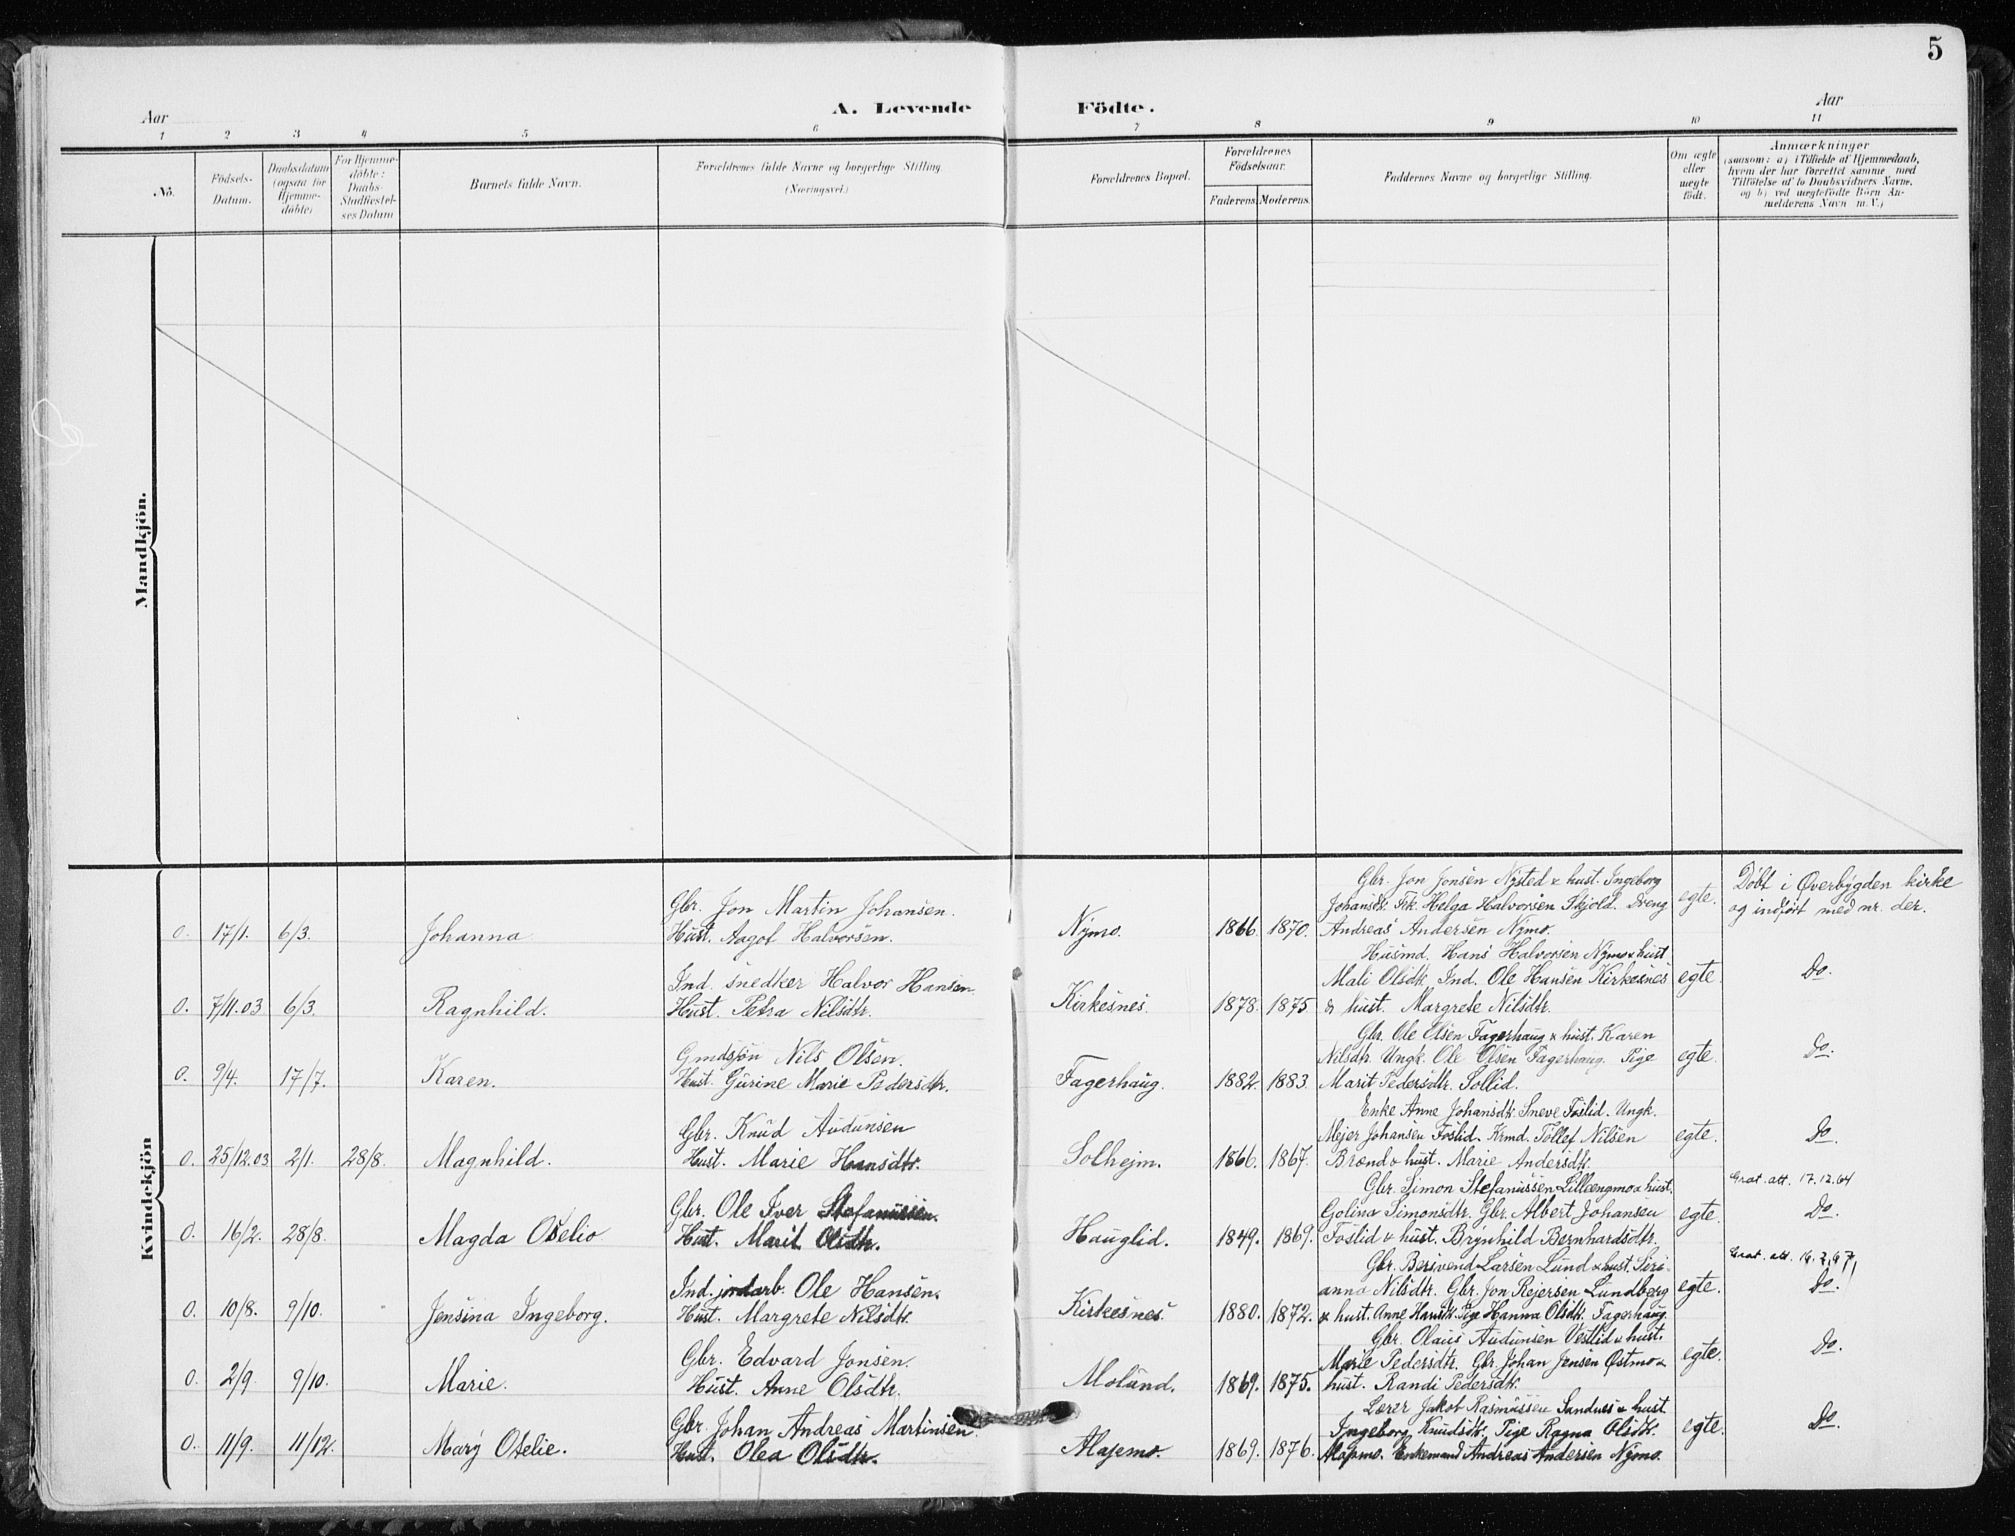 5
A. Levende Födte.
Aar
Aar
1 2 3 4 5 6 7 8 9 10 11
No.
Födsels-Datum.
Daabsdatum (ogsaa for Hjemme-döbte)
For Hjemme-döbte: Daabs-Stadfæstel-ses Datum
Barnets fulde Navn.
Forældrenes fulde Navne og borgerlige Stilling.
(Næringsvei.)
Forældrenes Bopæl.
Forældrenes Födselsaar.
Faderens. Moderens.
Faddernes Navne og borgerlige Stilling.
Om ægte eller uægte födt.
Anmærkninger
(saasom: a) i Tilfælde af Hjemmedaab,
hvem der har forrettet samme med
Tilföielse af to Daabsvidners Navne,
og b) ved uægtefödte Börn An-
melderens Navn m. V.)
Mandkjön.
Kvindekjön
Gbr. Jon Jonsen Nysted & hust. Ingeborg
Gbr. Jon Martin Johansen. Johansdtr. Frk. Helga Halvorsen Skjold. Dreng egte. Døbt i Øverbygden kirke
0. 17/1. 6/3. Johanna Hust. Aagot Halvorsen. Nymo. 1866. 1870. Andreas Andersen Nymo. og indført med nr. der.
Husmd. Hans Halvorsen Nymo & hust
Ind. snedker Halvor Hansen. Mali Olsdtr. Ind. Ole Hansen Kirkesnes egte. Do.
0. 7/11.03 6/3. Ragnhild. Hust. Petra Nilsdtr. Kirkesnes. 1878. 1875. & hust. Margrete Nilsdtr.
Gbr. Ole Olsen Fagerhaug & hust. Karen
Gmdsøn Nils Olsen. Nilsdtr. Ungk. Ole Olsen Fagerhaug. Pige egte. Do.
0. 9/4. 17/7. Karen. Hust. Gurine Marie Pedersdtr. Fagerhaug. 1882. 1883. Marit Pedersdtr. Sollid.
Enke Anne Johansdtr. Sneve Foslid. Ungk.
Gbr. Knud Audunsen Mejer Johansen Foslid. Krmd. Tollef Nilsen egte. Do.
0. 25/12.03 2/1. 28/8. Magnhild. Hust. Marie Hansdtr. Solhejm. 1866. 1867. Brænd & hust. Marie Andersdtr.
Gbr. Simon Stefanussen Lilleengmo & hust. Grat. att. 17.12.64
Gbr. Ole Iver Stefanussen. Golina Simonsdtr. Gbr. Albert Johansen egte. Do.
0. 16/2. 28/8. Magda Otelie Hust. Marit Olsdtr. Hauglid. 1849. 1869. Foslid & hust. Brynhild Bernhardsdtr.
Gbr. Larsen Lund & hust. Seri- Grat. att.
Ind. jordarb. Ole Hansen. anna Nilsdtr. Gbr. Jon Rejersen Lundberg egte. Do.
0. 10/8. 9/10. Jensina Ingeborg. Hust. Margrete Nilsdtr. Kirkesnes. 1880. 1872. & hust. Anne Hansdtr. Pige Hanna Olsdtr. Fagerhaug.
Gbr. Olaus Audunsen Vestlid & hust.
Gbr. Edvard Jonsen. Marie Pedersdtr. Gbr. Johan Jensen Østmo & egte. Do.
0. 2/9. 9/10. Marie. Hust. Anne Olsdtr. Moland. 1869. 1875. hust. Randi Pedersdtr.
Lærer Jakob Rasmussen Sandnes & hust
Gbr. Johan Andreas Martinsen. Ingeborg Knudsdtr. Pige Ragna Olsdtr. egte. Do.
0. 11/9. 11/12. Mary Otelie. Hust. Olea Olsdtr. Alapmo. 1869. 1876. Alapmo. Enkemand Andreas Andersen Nymo.